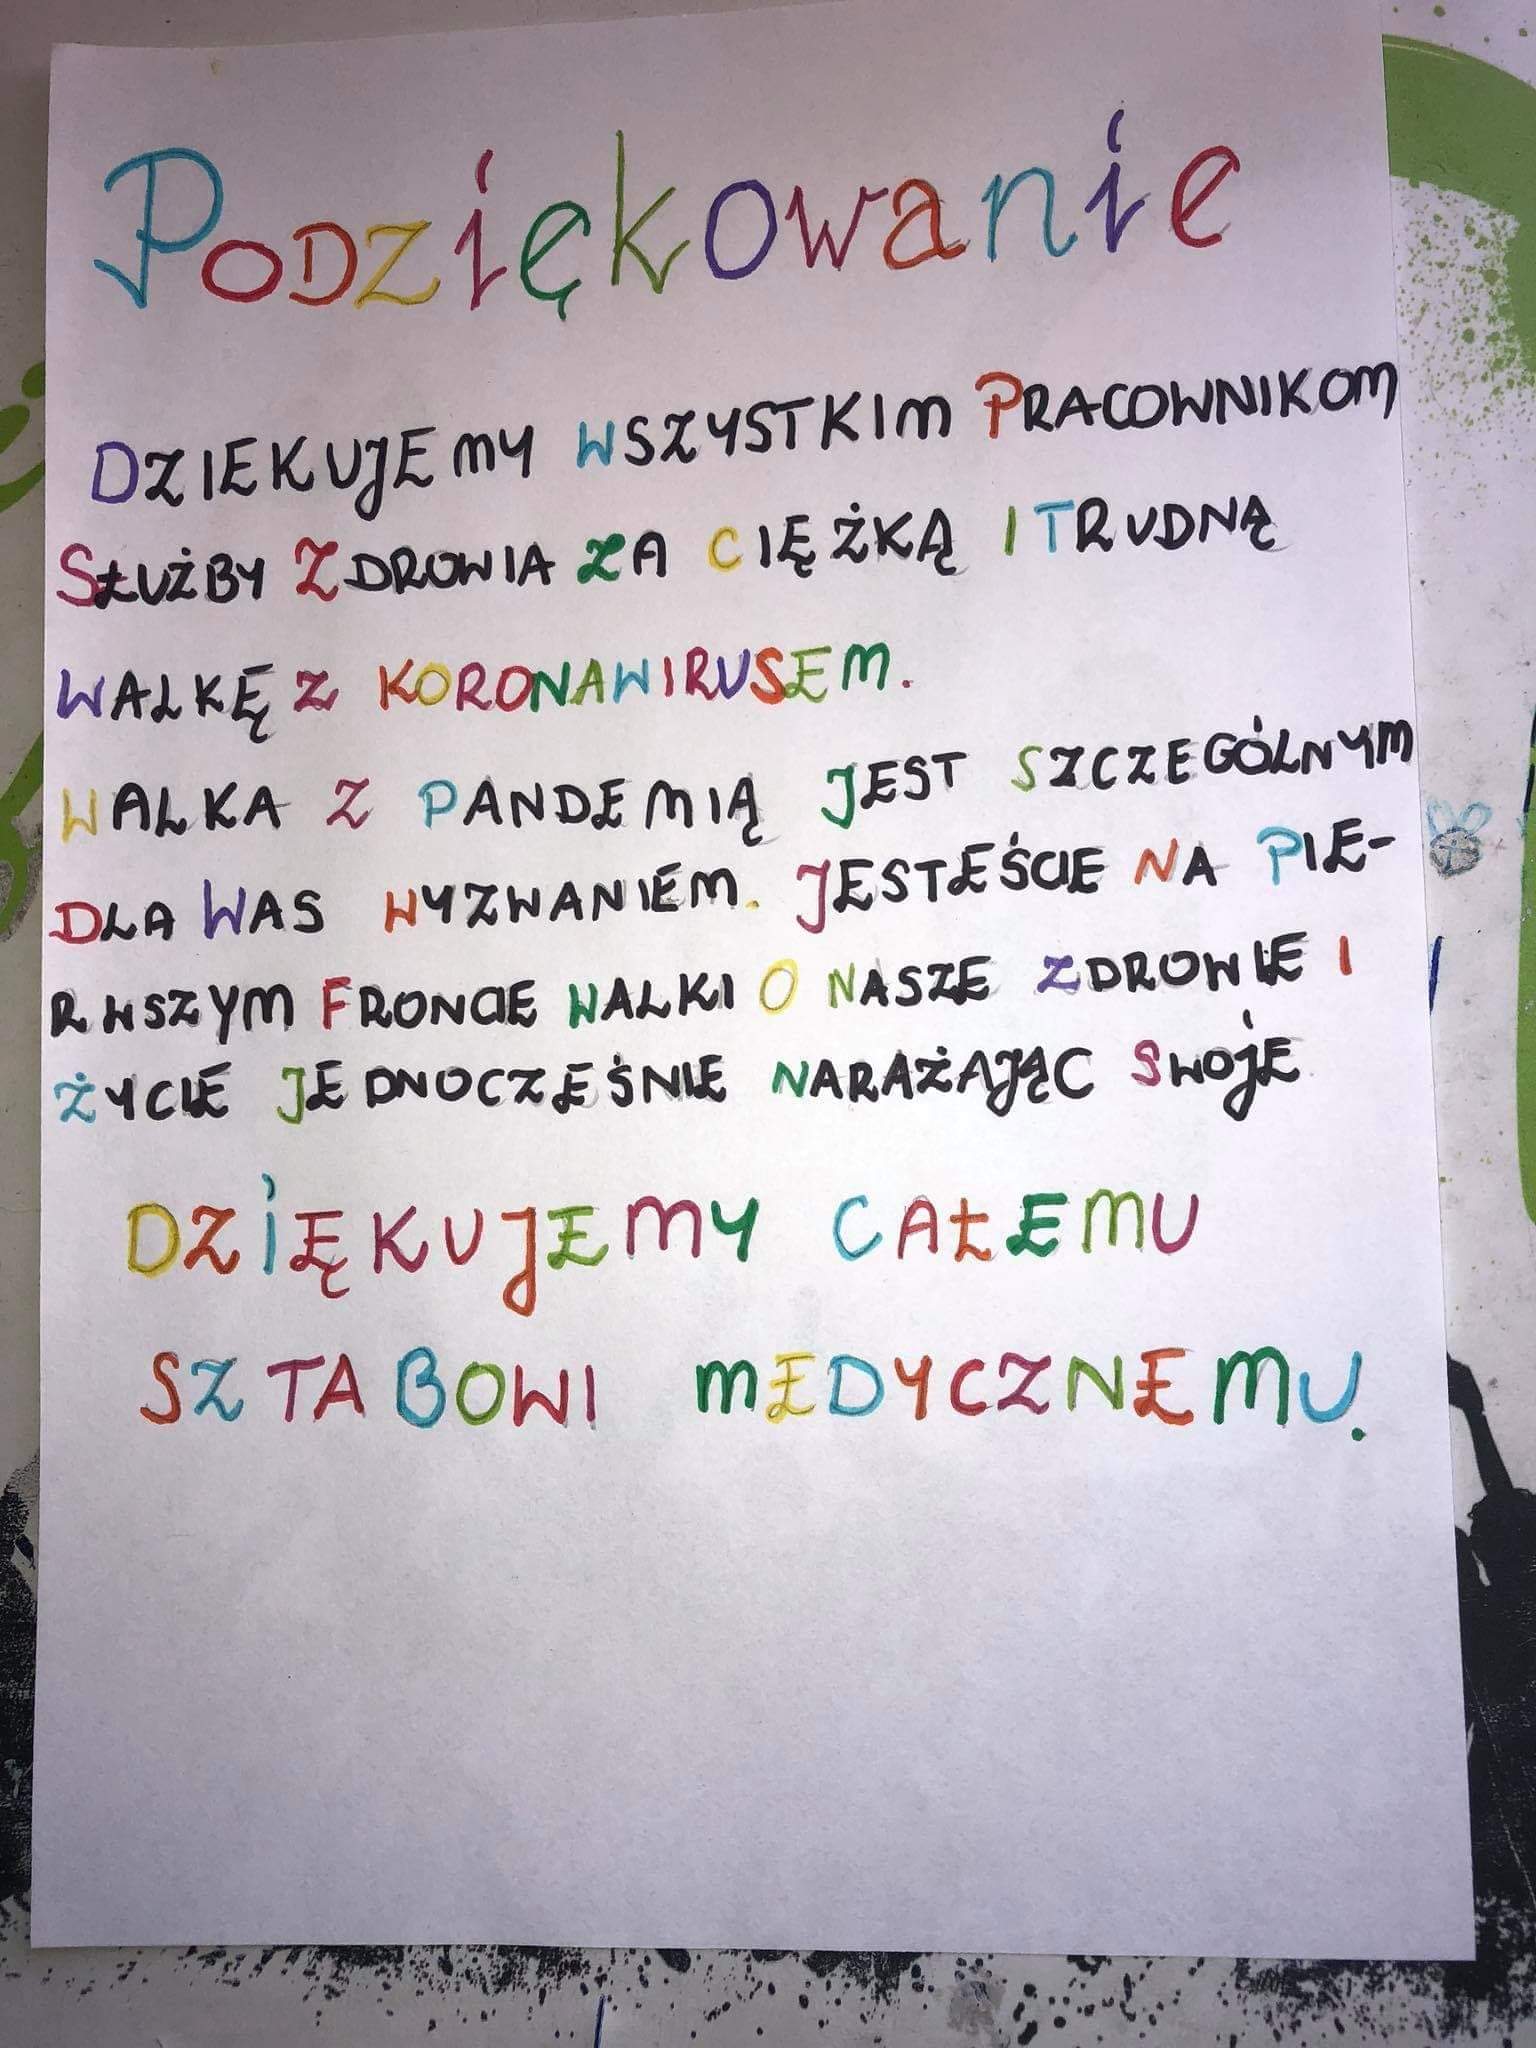 Podziękowanie
DZIEKUJEMY WSZYSTKIM PRACOWNIKOM
SŁUŻBY ZDROWIA ZA CIĘŻKĄ I TRUDNĄ
WALKĘ Z KORONAWIRUSEM.
WALKA Z PANDEMIĄ JEST SZCZEGÓLNYM
DLA WAS WYZWANIEM. JESTEŚCIE NA PIE-
RWSZYM FRONCIE WALKI O NASZE ZDROWIE I
ŻYCIE JEDNOCZEŚNIE NARAŻAJĄC SWOJE
DZIĘKUJEMY CAŁEMU
SZTABOWI MEDYCZNEMU.